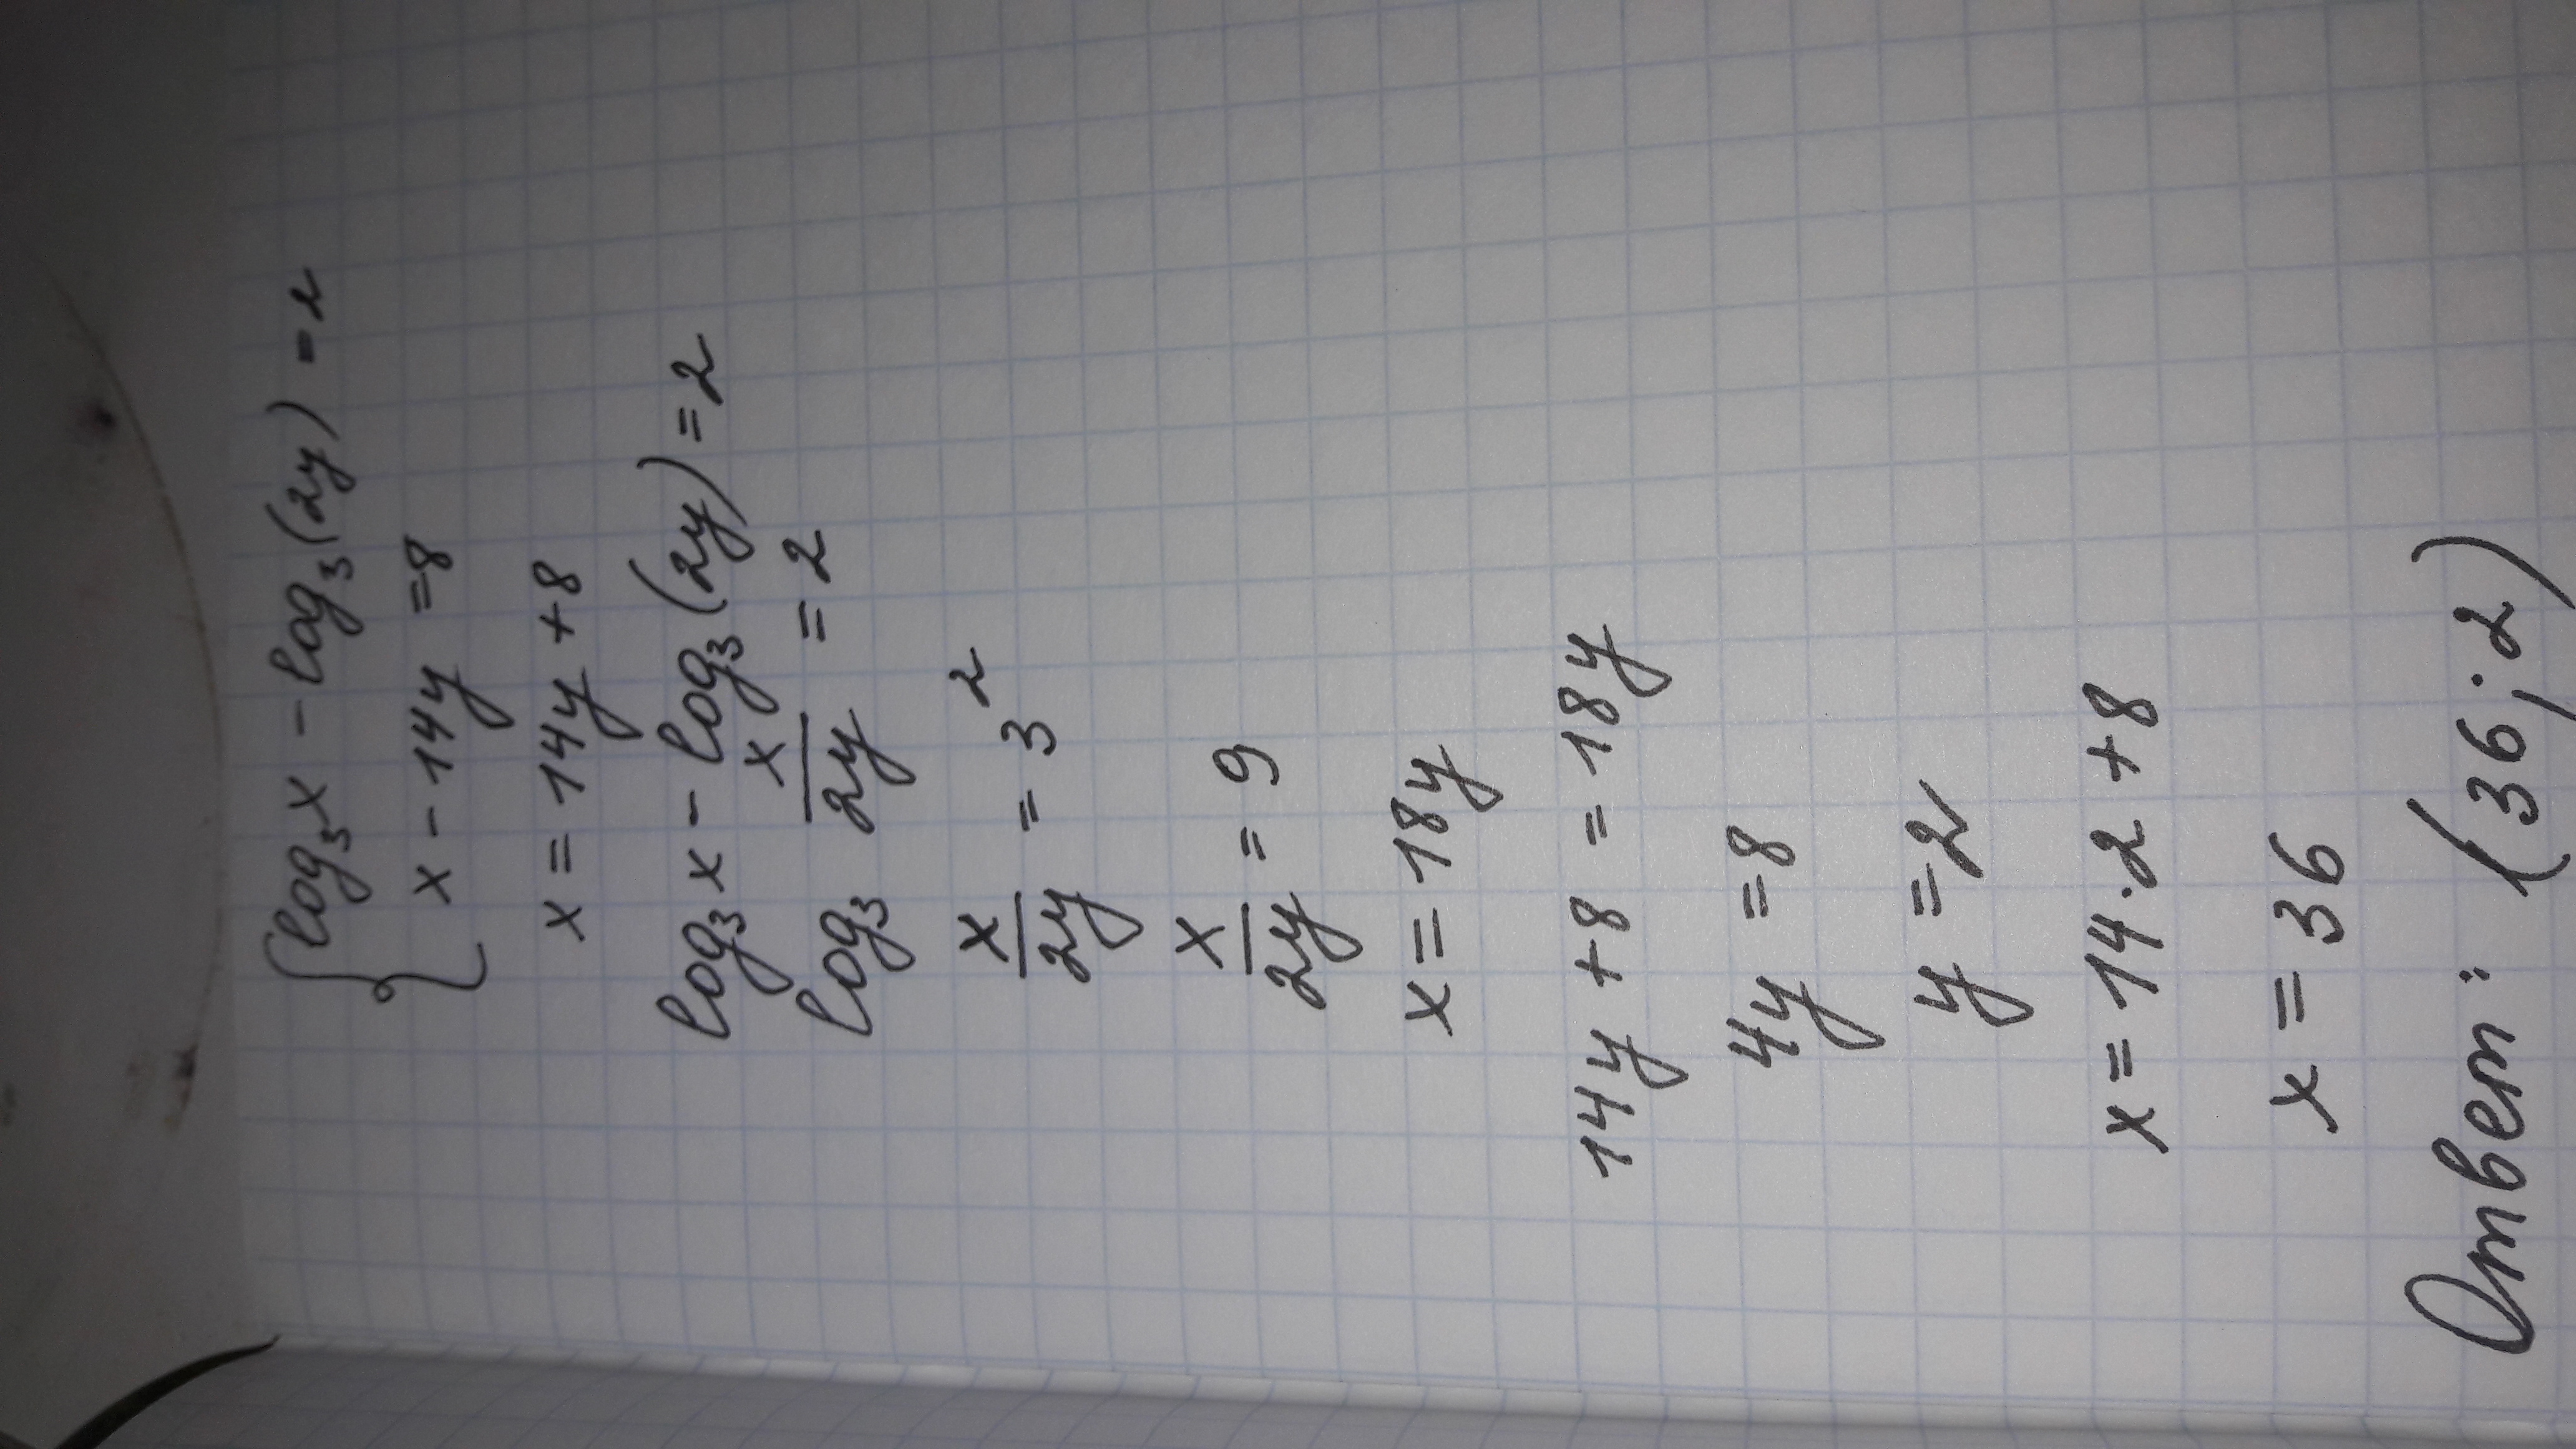 {log₃x - log₃(2y) = 2
x - 14y = 8
x = 14y + 8
log₃x - log₃(2y) = 2
log₃ x/2y = 2
x/2y = 3²
x/2y = 9
x = 18y
14y + 8 = 18y
4y = 8
y = 2
x = 14·2 + 8
x = 36
Ответ: (36; 2)